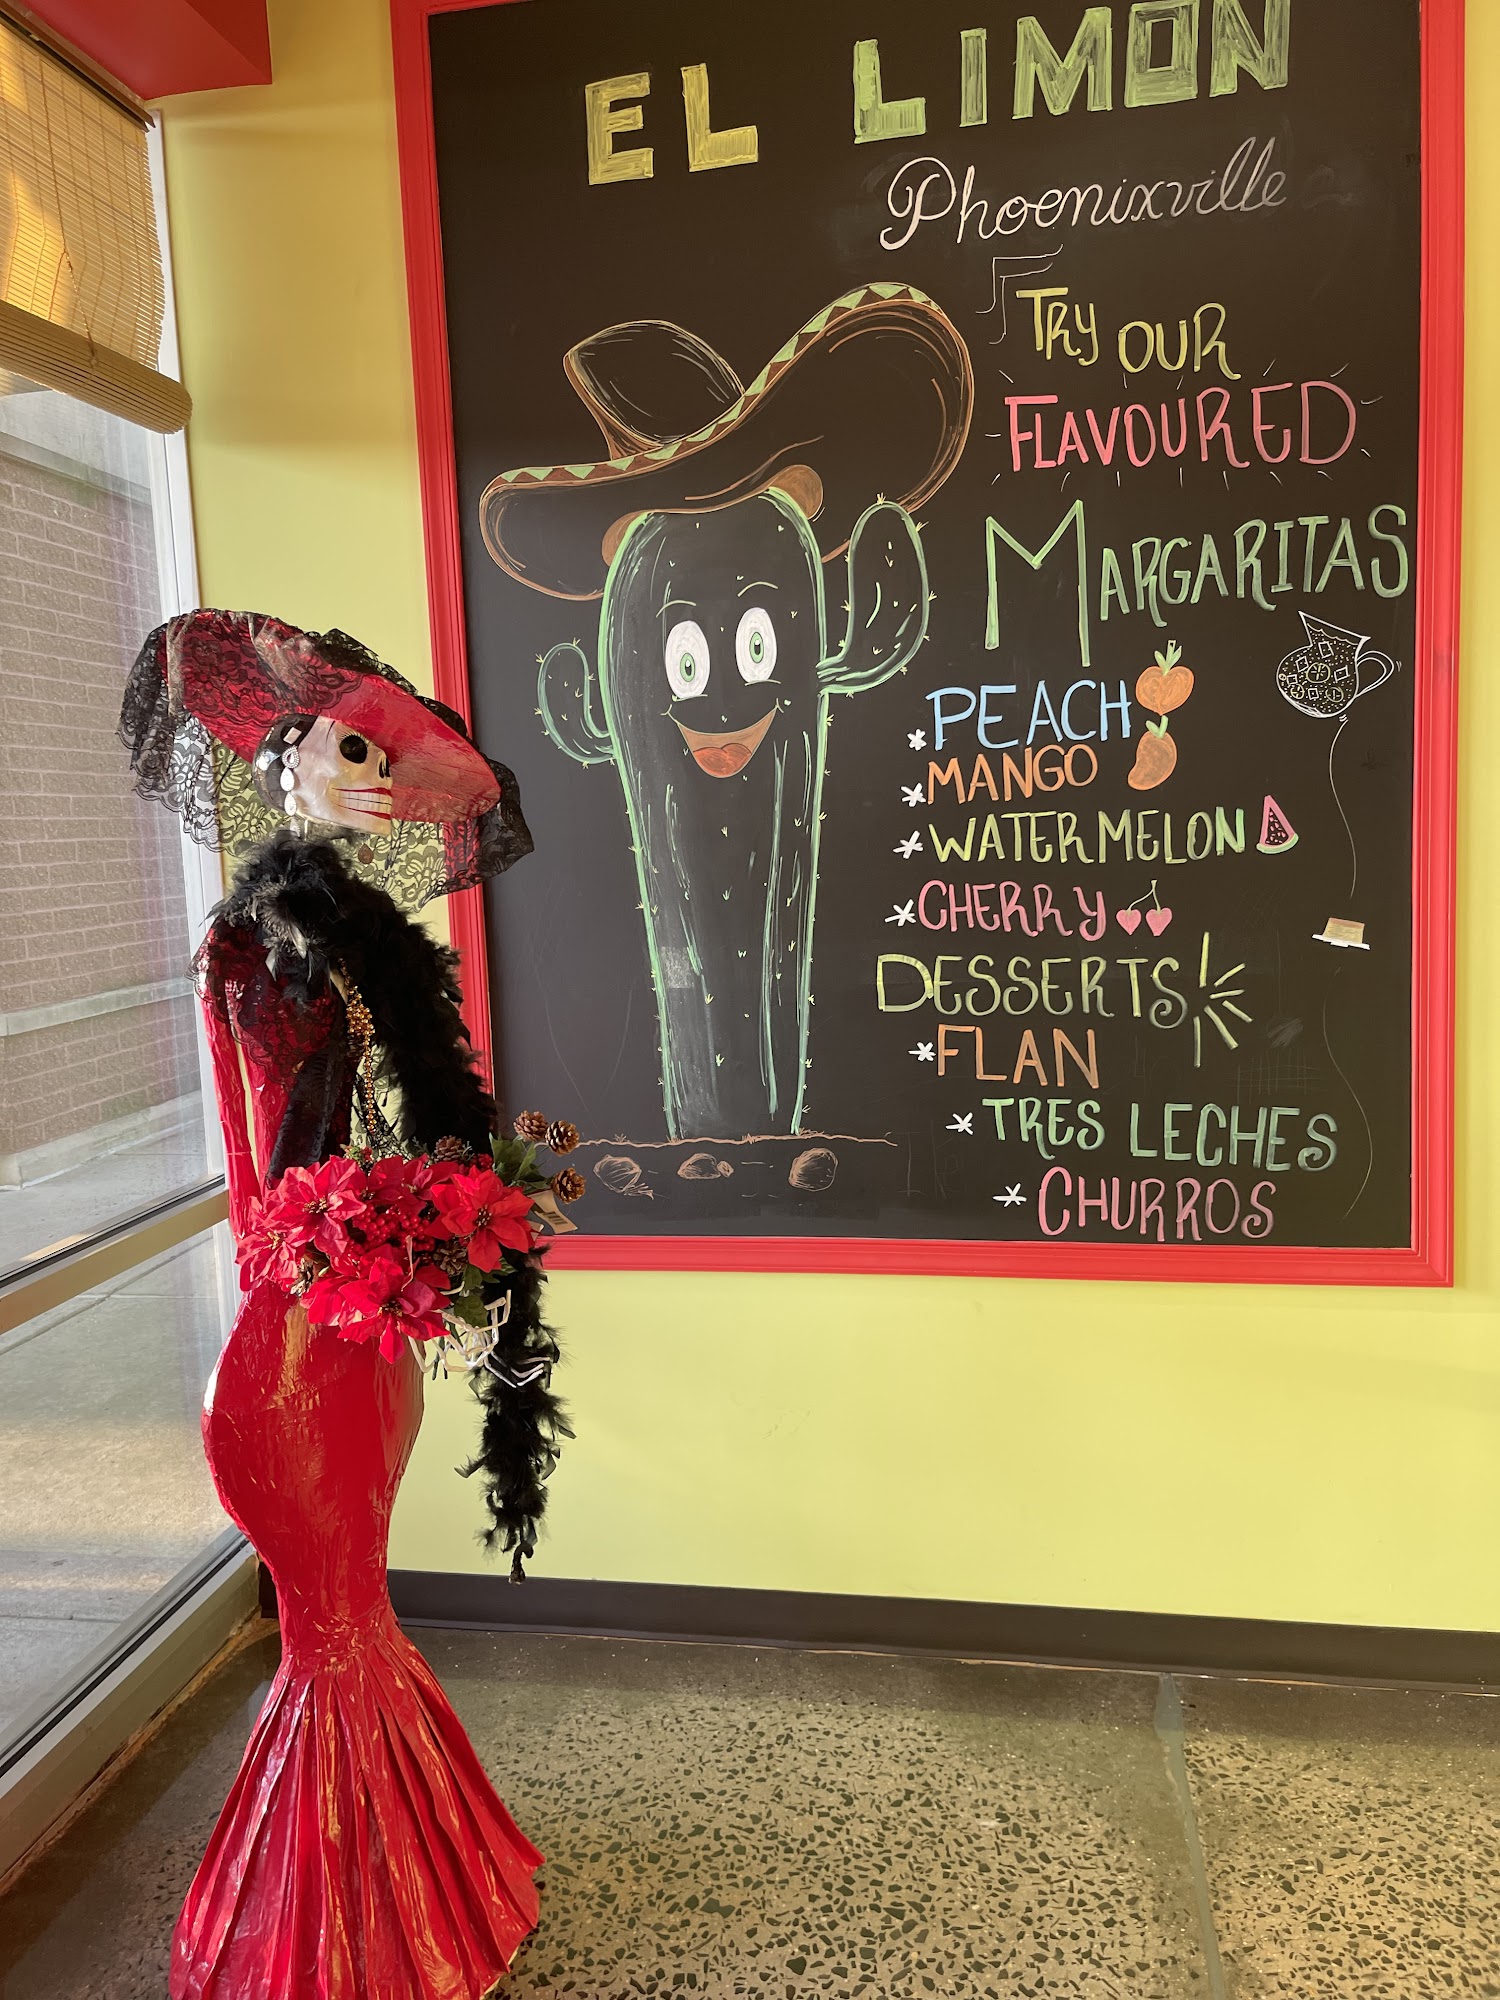 EL LIMON
Phoenixville
TRY OUR
FLAVOURED
MARGARITAS
* PEACH
* MANGO
* WATERMELON
* CHERRY
DESSERTS
* FLAN
* TRES LECHES
* CHURROS